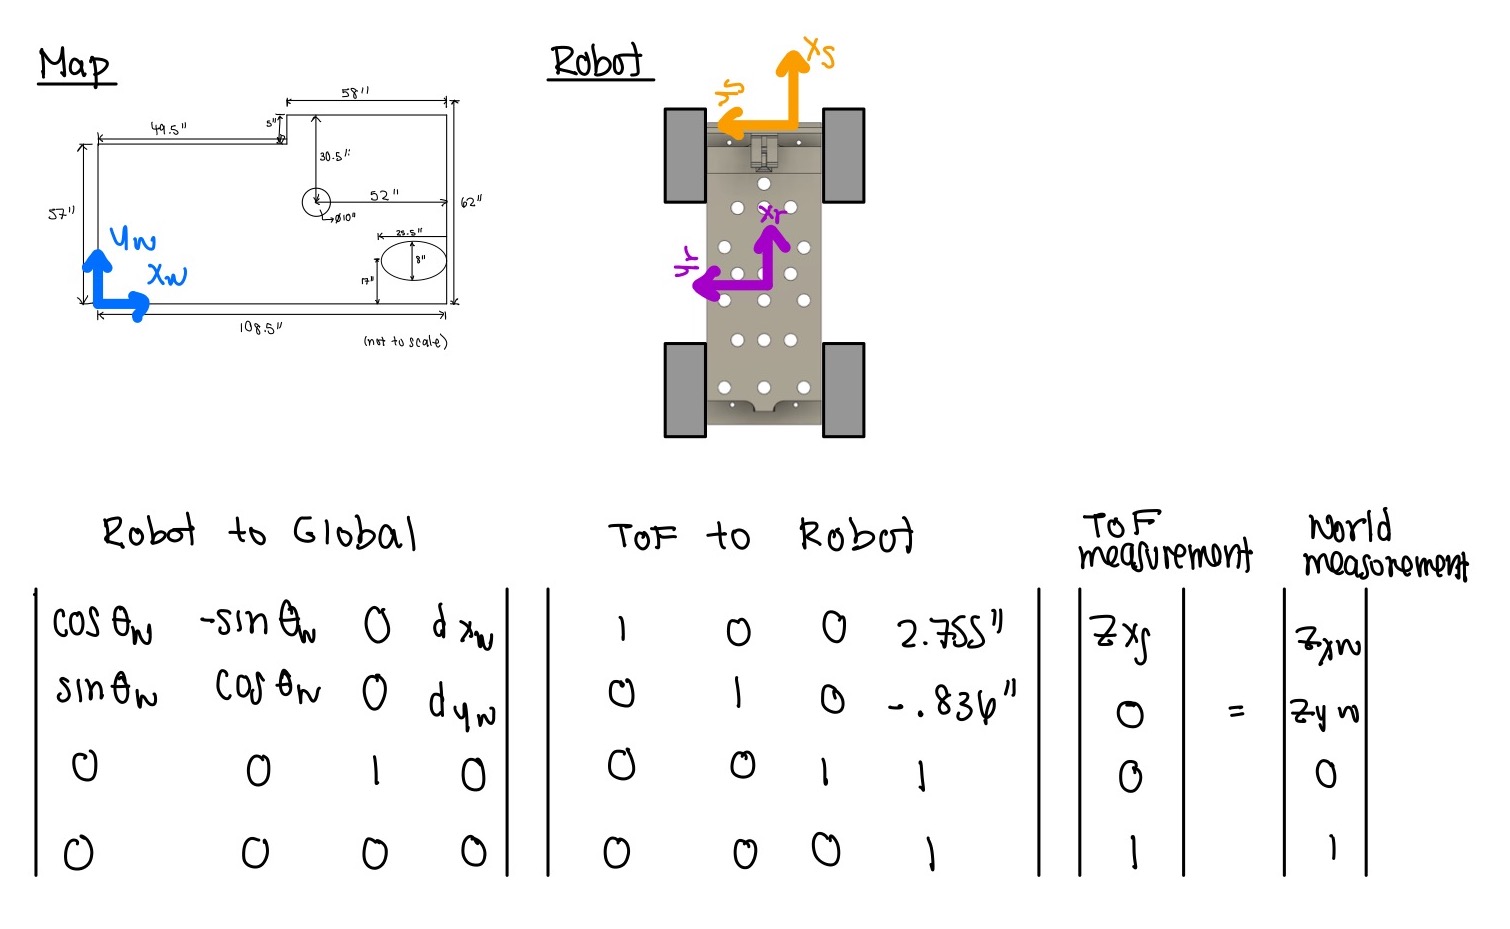 Map
Robot
58"
49.5"
5"
30.5"
52"
ø10"
62"
57"
25.5"
8"
17"
yw
xw
108.5"
(not to scale)
xs
ys
xr
yr
Robot to Global
ToF to Robot
ToF measurement
World measurement
cos θw -sin θw 0 dxw
sin θw cos θw 0 dyw
0 0 1 0
0 0 0 0
1 0 0 2.755"
0 1 0 -.836"
0 0 1 1
0 0 0 1
zxs
0
0
1
=
zxw
zyw
0
1